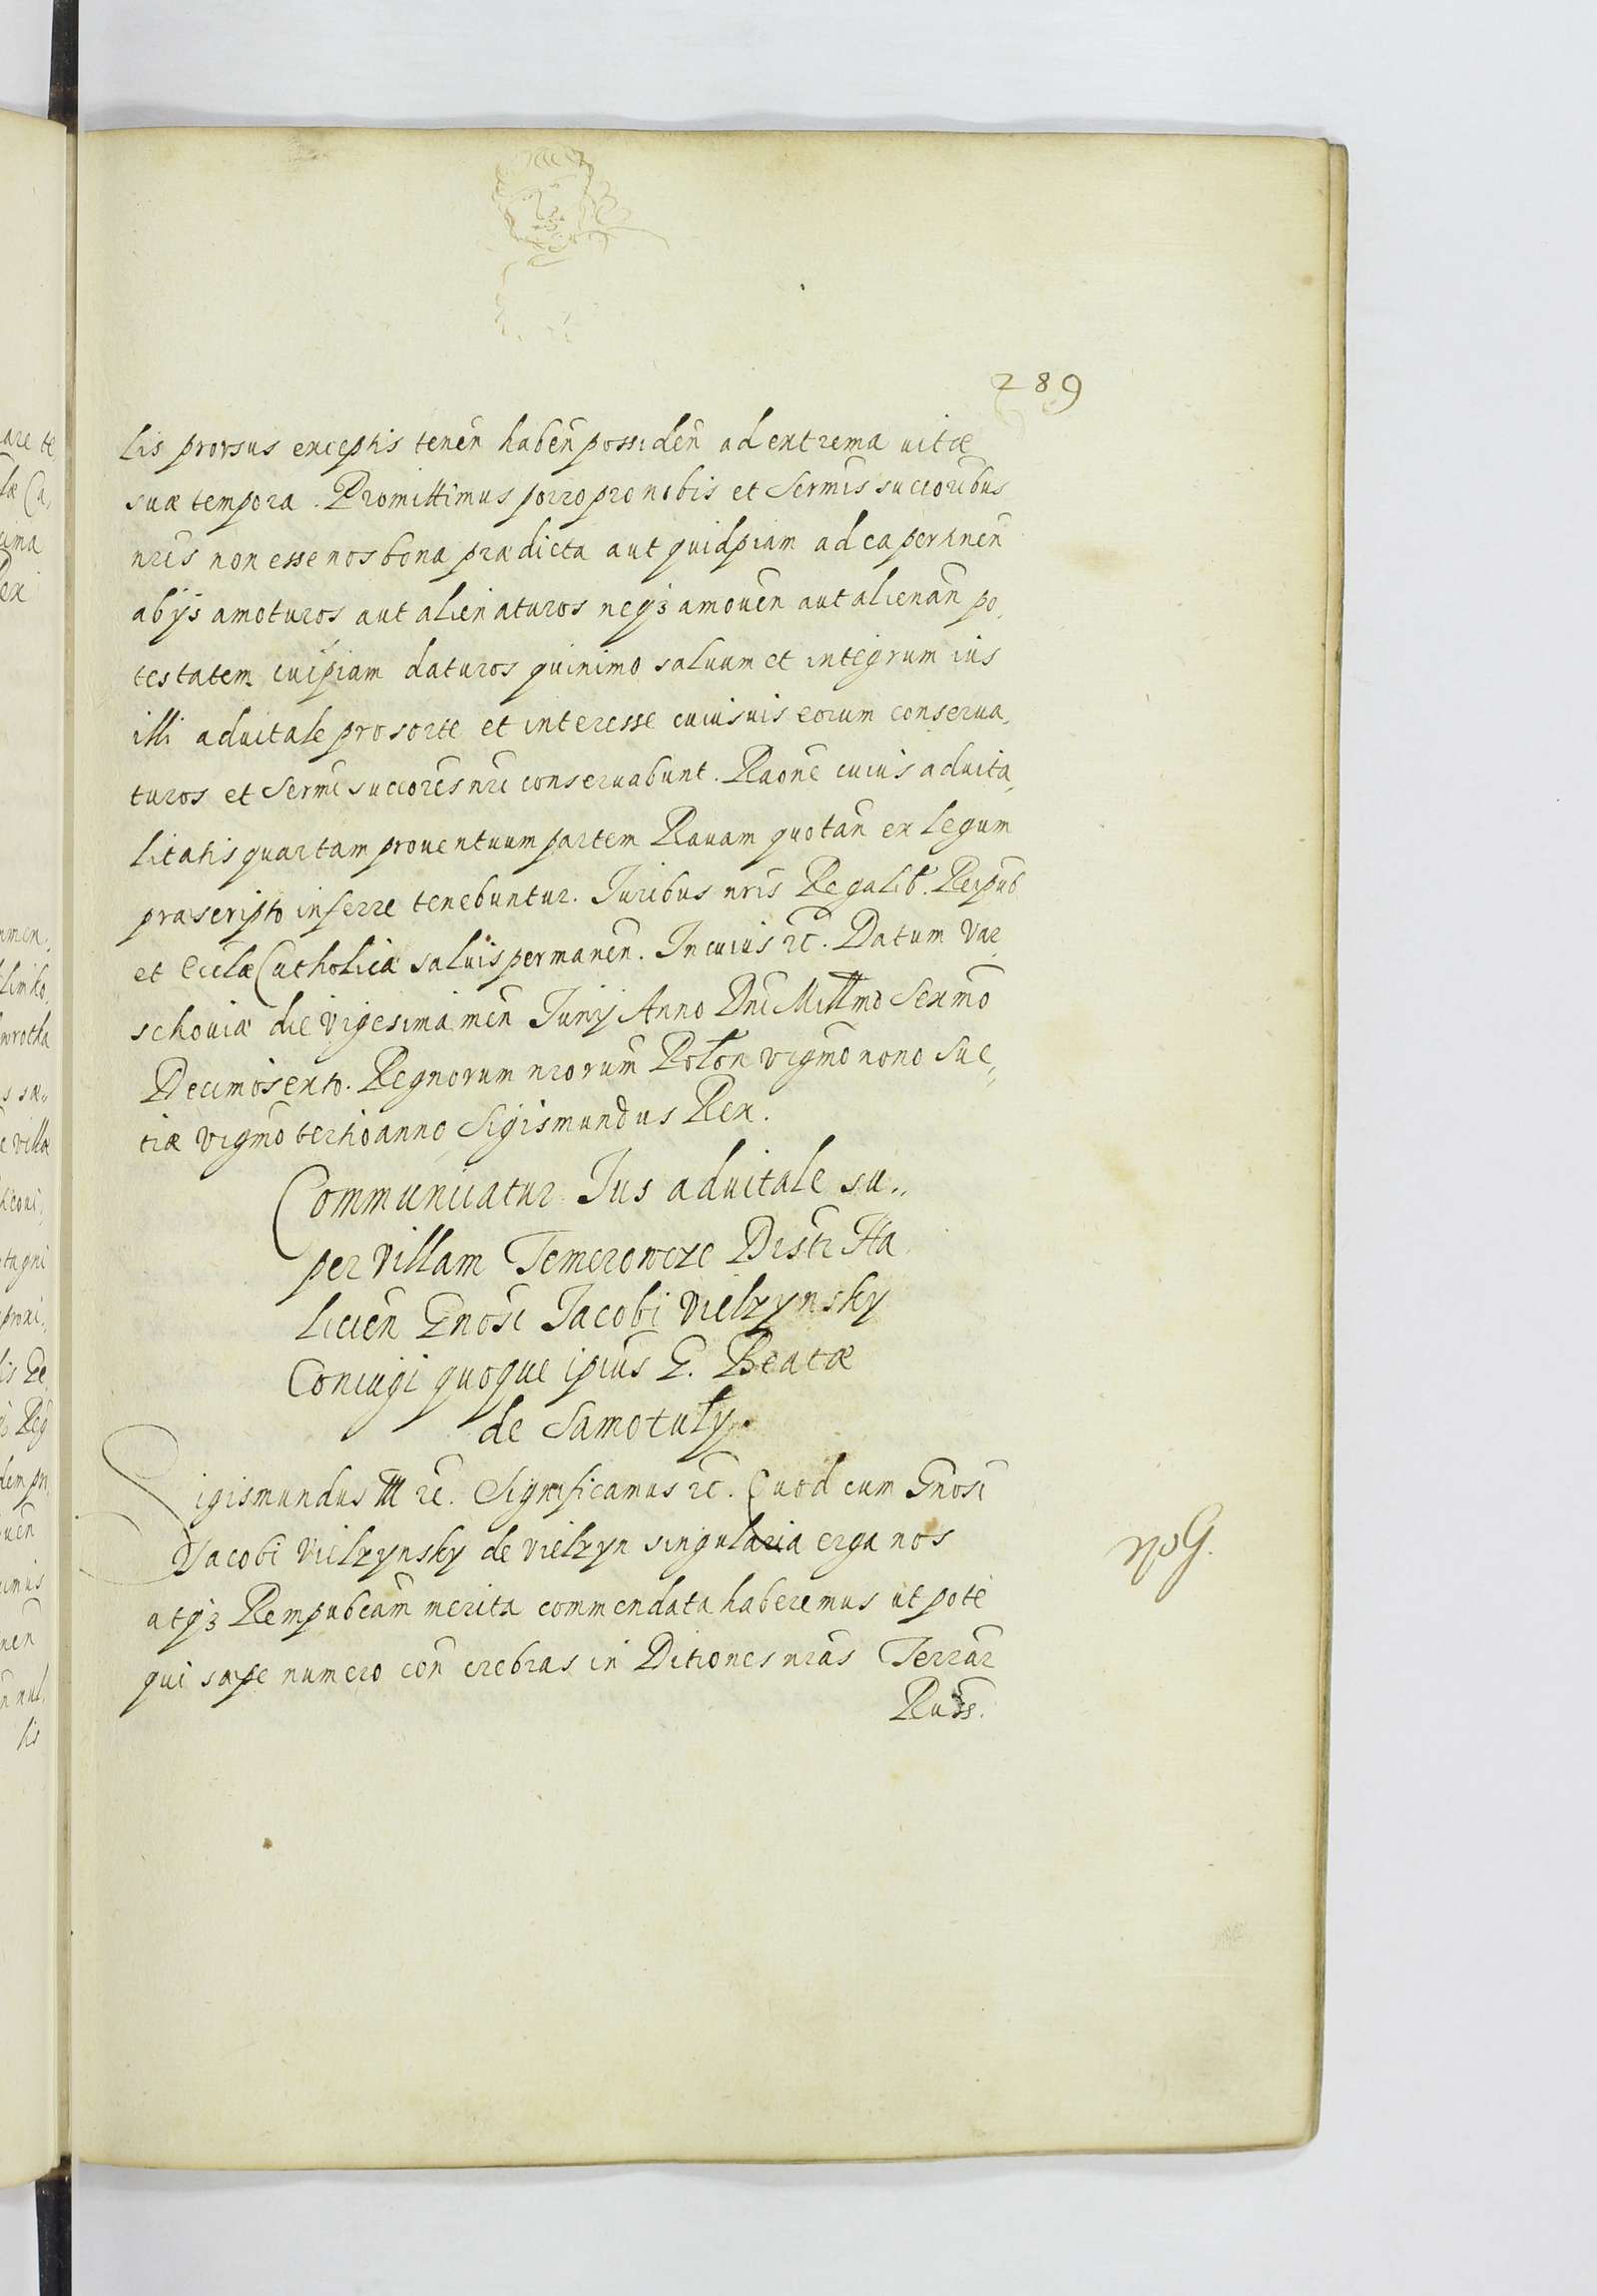 289
lis prorsus exceptis tenen̄ haben̄ possiden̄ ad extrema uitæ
suæ tempora. Promittimus porro pro nobis et Serm̄is succoribus
nrīs non esse nos bona prædicta aut quidpiam ad ea pertinen̄
ab ijs amoturos aut alienaturos neq₃ amouen̄ aut alienan̄ po,
testatem cuipiam daturos quinimo saluum et integrum ius
illi aduitale pro sorte et interesse cuiusuis eorum conserua,
turos et Serm̄i succores nrī conseruabunt. Raōne cuius aduita,
litatis quartam prouentuum partem Rauam quotan̄ ex legum
præscripto inferre tenebuntur. Iuribus nrīs Regalib. Reipub
et Ecclæ Catholicæ saluis permanen̄. In cuius rc̄. Datum Var,
schouiæ die vigesima men̄ Iunij Anno Dnī Millmo Sexm̄o
Decimosexto. Regnorum nrōrum Polon vigm̄o nono Sue,,
tiæ vigm̄o tertio anno Sigismundus Rex.
Communicatur Ius aduitale su,,
per villam Temerowcze Distr̄ Ha,
licien̄ Gnōsi Iacobi Vielzynsky
Coniugi quoque ipīus G. Beatæ
de Samotuły.
Sigismundus III rc̄. Significamus rc̄. Quod cum Gnōsi
Iacobi Vielzynsky de Vielzyn singularia erga nos
atq₃ Rempubcam̄ merita commendata haberemus utpote
qui sæpe numero con̄ crebras in Ditiones nrās Terrar̄
Russ.